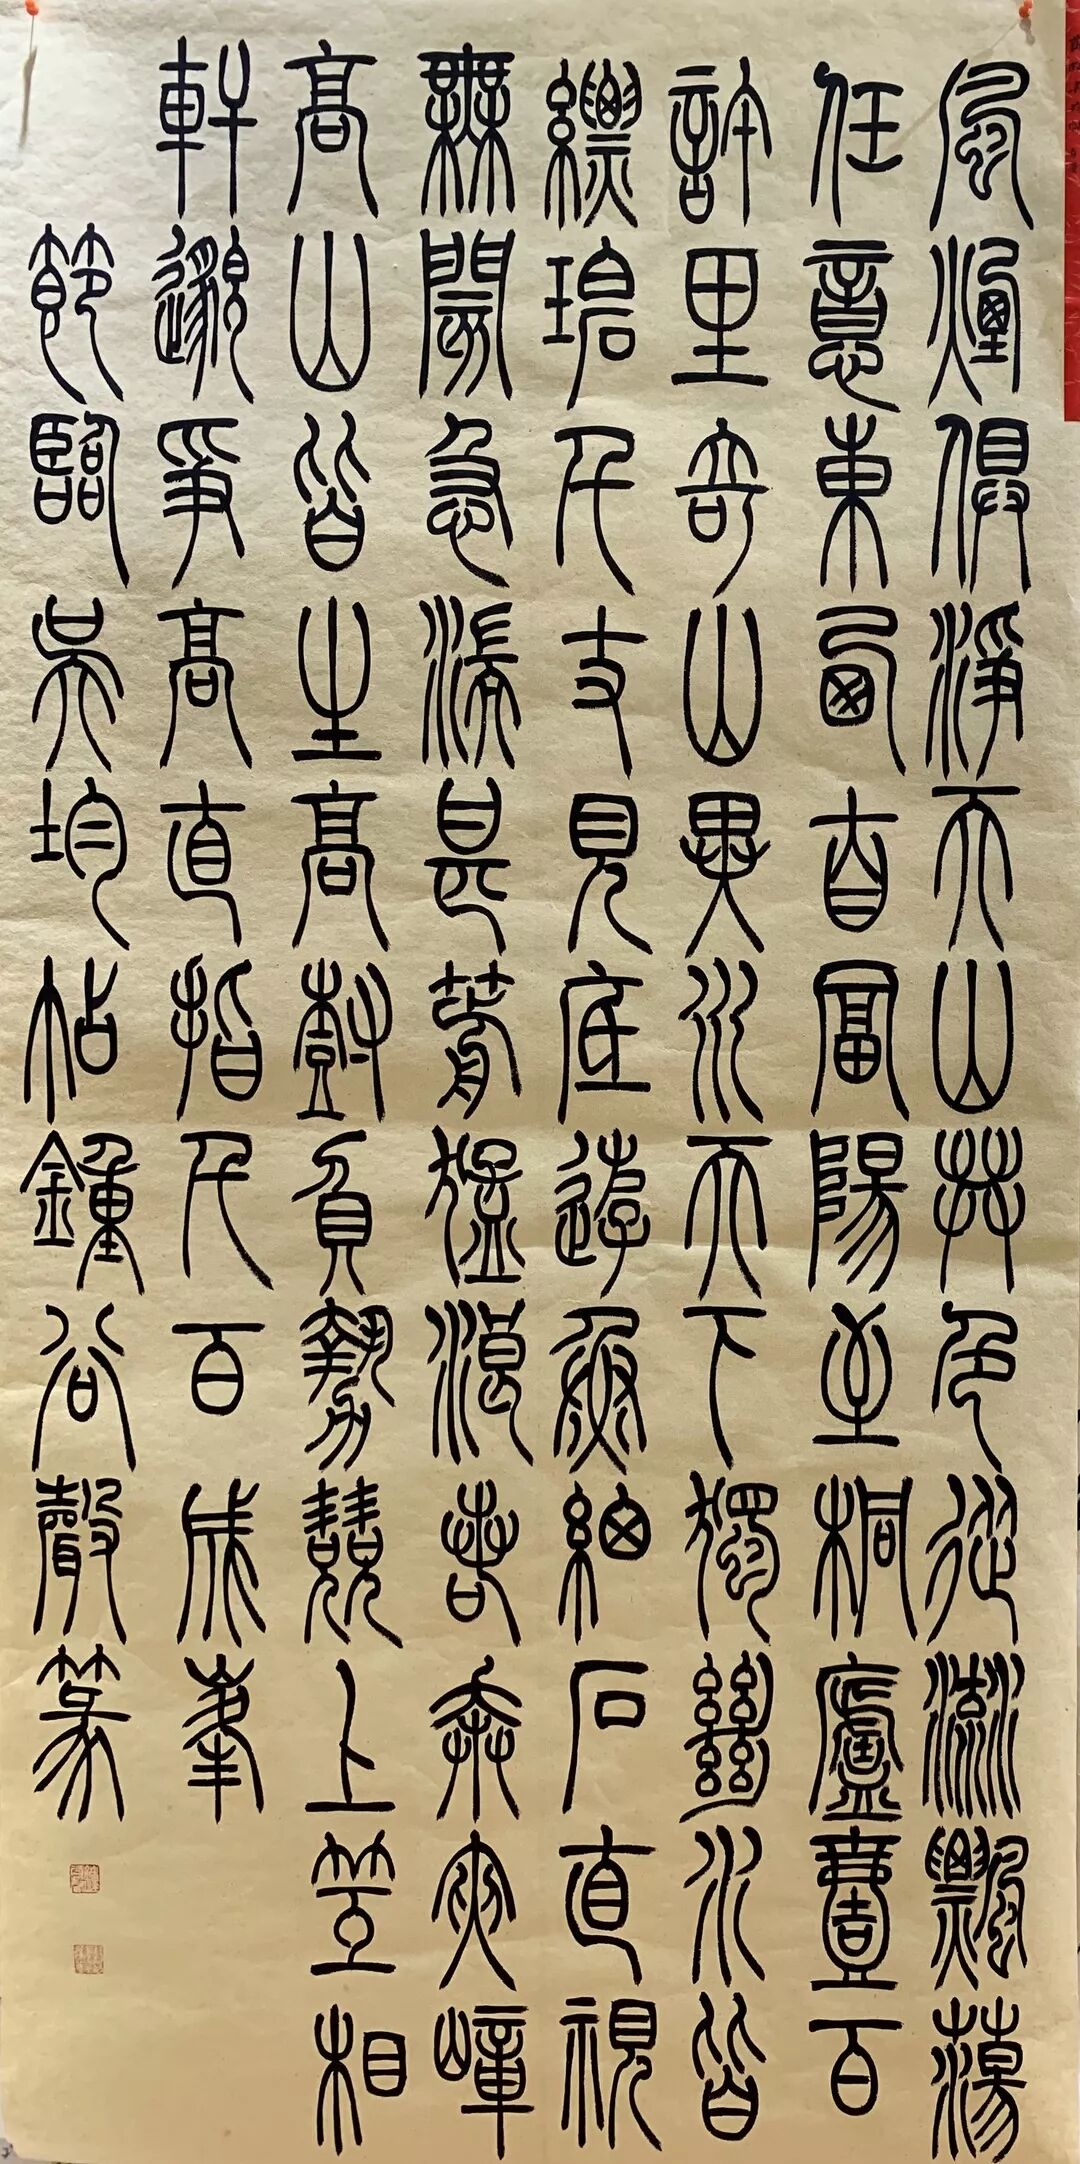 風煙俱淨天山共色從流飄蕩
任意東西自富陽至桐廬壹百
許里奇山異水天下獨絕水皆
縹碧千丈見底遊魚細石直視
無閡急湍甚箭猛浪若奔夾嶂
高山皆生高樹負勢競上互相
軒邈爭高直指千百成峯
節臨吳均帖鍾谷聲篆